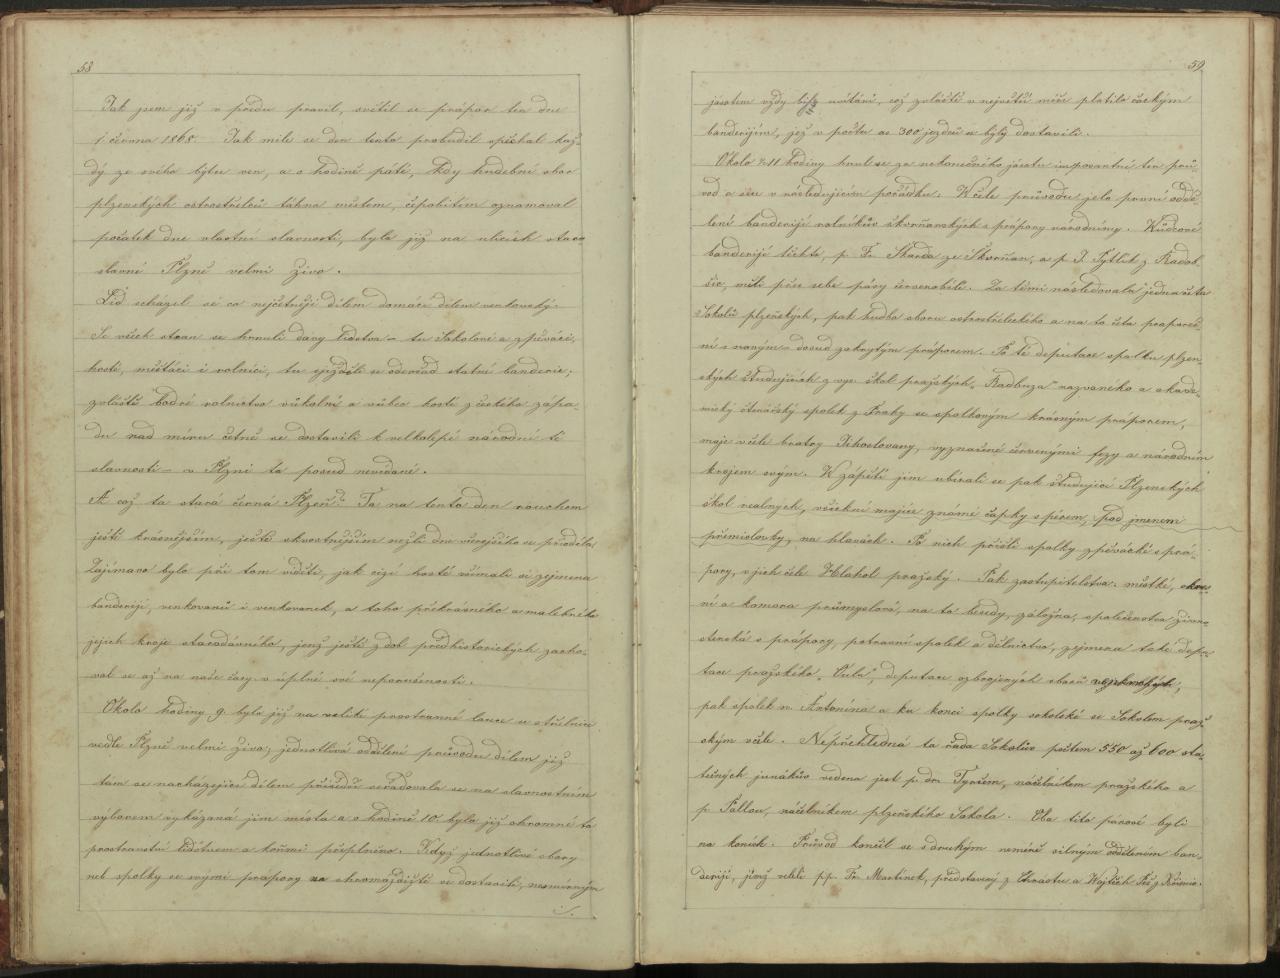 58
Jak jsem již v předu pravil, světil se prápor ten dne
1 června 1868. Jak mile se den tento probudil spěchal kaž-
dý ze svého bytu ven, a o hodině páté, kdy hudební sbor
plzenských ostrostřelců táhna městem, čipobitím oznamoval
počátek dne vlastní slavnosti, bylo již na ulicích staro
slavné Plzně velmi živo.
Lid scházel se co nejčetněji dílem domácí dílem venkovský.
Se všech stran se hrnuli davy lidstva – tu Sokolové a zpěváci,
hosté, měšťáci i rolníci, tu sjížděli se odevšad statné banderie;
zvláště bodré rolnictvo vůkolní a vůbec hosté z českého zápa-
du nad míru četně se dostavili k velkolepé národní té
slavnosti – v Plzni to posud nevídané.
A což ta stará černá Plzeň? Ta na tento den rouchem
ještě krásnějším, ještě skvostnějším nežli dne včerejšího se přioděla.
Zajímavo bylo při tom viděti, jak cizí hosté všímali si zejmena
banderijí, venkovanů i venkovanek, a toho překrásného a malebného
jejich kroje starodávného, jenž ještě z dob předhistorických zacho-
val se až na naše časy v úplné své neporušenosti.
Okolo hodiny 9. bylo již na veliké prostranné louce u střelnice
vedle Plzně velmi živo; jednotlivá oddělení průvodu dílem již
tam se nacházející dílem přišedší seřadovala se na slavnostním
výborem vykázaná jim místa a o hodině 10. bylo již ohromné to
prostranství lidstvem a koňmi přeplněno. Když jednotlivé sbory
neb spolky se svými prápory na shromaždiště se dostavili, nesmírným
./.
59
jásotem vždy byly uvítáni, což zvláště v největší míře platilo českým
banderijím, jež v počtu as 300 jezdců a byly dostavili.
Okolo ½11 hodiny hnul se za nekonečného jásotu imposantní ten prů-
vod a sice v následujícím pořádku: V čele průvodu jelo první oddě-
lení banderijí rolníkův škvrňanských s prápory národními. Vůdcové
banderijí těchto, p. Fr. Škarda ze Škvrňan, a p. J. Pytlík z Radob-
čic, měli přes sebe pásy červenobílé. Za těmi následovala jedna četa
Sokolů plzeňských, pak hudba sboru ostrostřeleckého a na to četa praporeč-
ní s novým – dosud zakrytým práporem. Po té deputace spolku plzen-
ských študujících z vys. škol pražských, „Radbuza“ nazvaného a akade-
mický čtenářský spolek z Prahy se spolkovým krásným práporem,
maje v čele bratry Jihoslovany, vyznačené červenými fezy a národním
krojem svým. V zápětí jim ubírali se pak študující Plzenských
škol realných, všichni majíce známé čapky s pérem, pod jmenem
přemislovky, na hlavách. Po nich přišli spolky zpěvácké s prá-
pory, v jich čele Hlahol pražský. Pak zastupitelstva: městké, okre-
ní a komora průmyslová, na to besedy, záložna, společenstva živno-
stenská s prápory, potravní spolek a dělnictvo, zejmena také depu-
tace pražského „Oula“, deputace ozbrojených sborů
pak spolek sv. Antonína a ku konci spolky sokolské se Sokolem praž-
ským v čele. Nepřehledná ta řada Sokolův počtem 550 až 600 sta-
tečných junákův vedena jest p. dr. Tyršem, náčelníkem pražského a
p. Pallou, náčelníkem plzeňského Sokola. Oba tito pánové byli
na koních. Průvod končil se s druhým neméně silným oddělením ban-
derijí, jímž veleli pp. Fr. Martínek, představený z Chrástu a Wojtěch Peš z